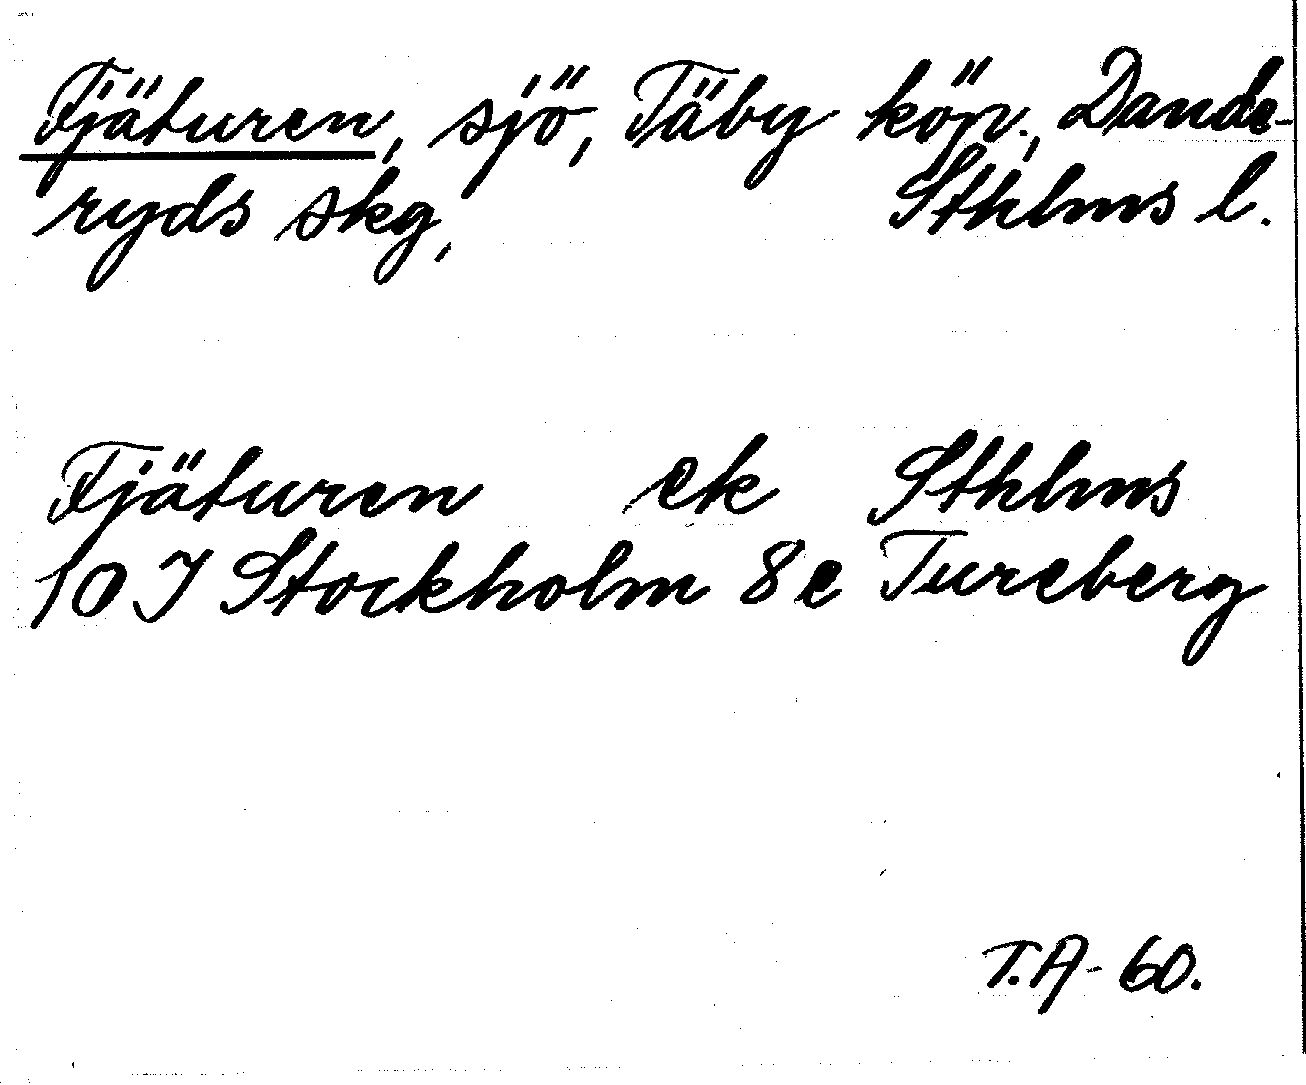 Fjäturen, sjö, Täby köp., Dande-
ryds skg, Sthlms l.
Fjäturen ek Sthlms
10 I Stockholm 8 e Tureberg
T.A-60.